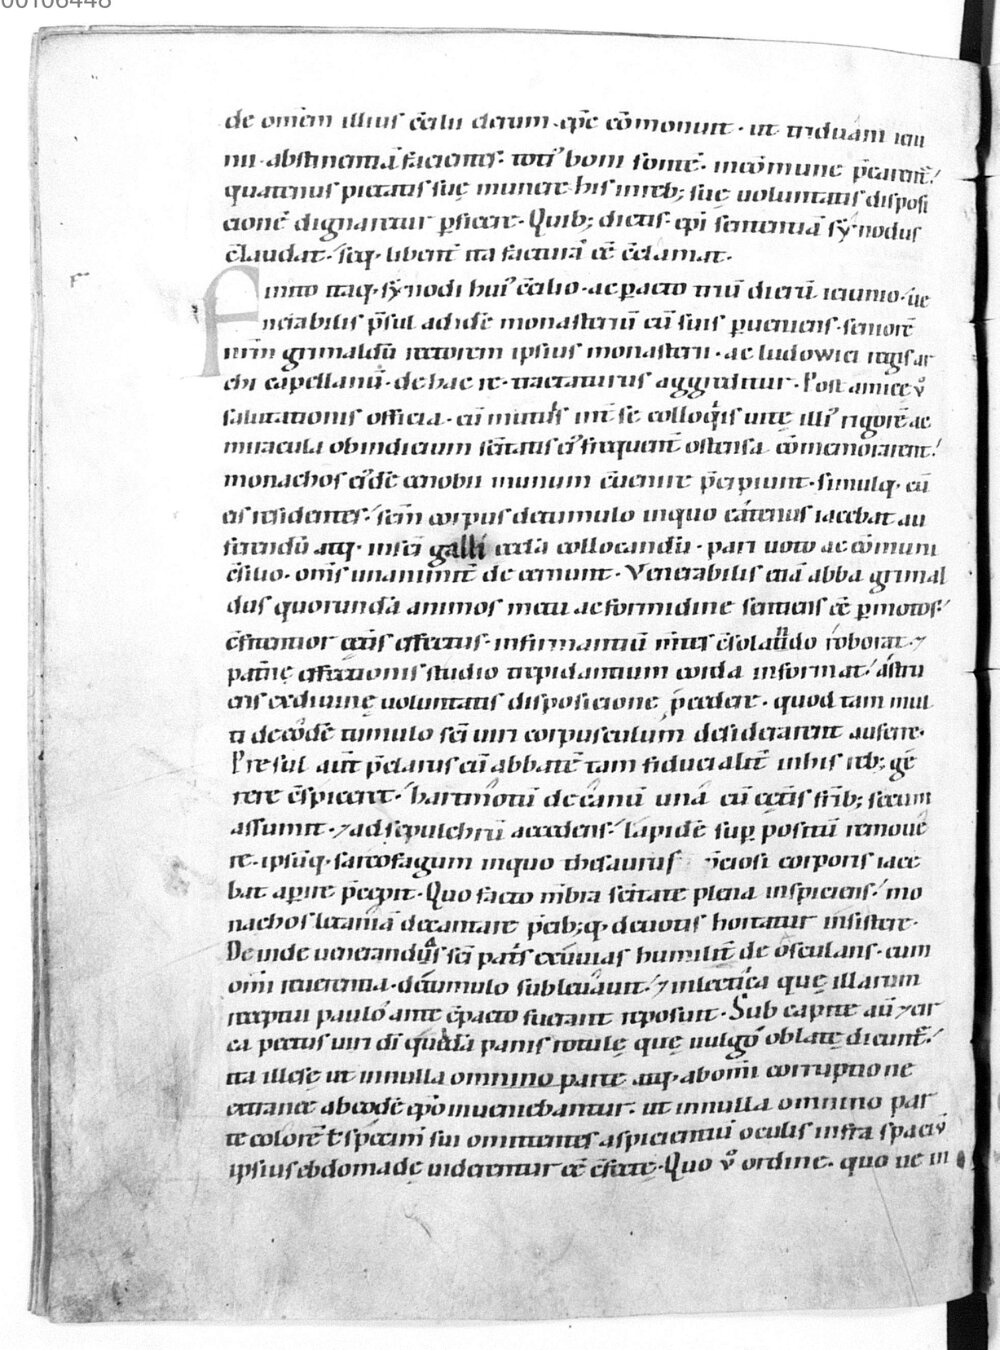 00106448
de om̄em illius c̄cilii cletum ep̄c cōmonuit · ut triduam ieiu
nii abstinentiā facientes · toti' boni fontē · incōmune p̄carent̄ /
quatenus pietatis suę munere his inreb; suę uoluntatis disposi
cionē dignaretur ꝑficere · Quib; dictis · ep̄i sententiā synodus
c̄laudat · seq · libent̄ ita facturā cē c̄clamat ·
Finito itaq · synodi hui' c̄cilio · ac ꝑacto triū dierū ieiunio / ue
nerabilis p̄sul ad idē monasteriū cū suis ꝑueniens · seniorē
grimaldū rectorem ipsius monasterii · ac ludowici regis ar
chi capellanū · de hac re tractaturus aggreditur · Post amicę v̄
salutationis officia · cū mutuis int̄ se colloqiis uitę illi' rigorē ac
miracula ob indicium sc̄itatis ei' frequent̄ ostensa cōmemorarent /
monachos ei'dē cenobii in unum c̄uenire p̄cipiunt · simulq · cū
eis residentes / sc̄m corpus detumulo inquo eatenus iacebat au
ferendū atq · insc̄i galli ecclā collocandū · pari uoto ac cōmuni
c̄silio · om̄s unanimit̄ de cernunt · Venerabilis etiā abba grimal
dus quorundā animos metu ac formidine sentiens cē ꝑmotos /
c̄stantior cęt̄is effectus · infirmantiū m̄tes c̄solando roborat · ⁊
pat̄nę affectionis studio trepidantium corda informat / astru
ens ex diuinę uoluntatis disposicione p̄cedere · quod tam mul
ti de eodē tumulo sc̄i uiri corpusculum desiderarent auferre ·
Presul aut̄ p̄clarus cū abbatē tam fiducialit̄ inhis reb; gē
rere c̄spiceret · hartmotū decanū una cū cęt̄is fr̄ib; secum
assumit · ⁊ ad sepulchrū accedens / lapidē sup̱ positū remoue
re · ipsūq · sarcofagum inquo thesaurus p̄ciosi corporis iace
bat aꝑire p̄cepit · Quo facto m̄bra sc̄itate plena inspiciens / mo
nachos lętaniā decantare p̄cib; q · deuotis hortatur insistere ·
De inde uenerandas sc̄i pat̄s exuuias humilit̄ de osculans · cum
om̄i reuerentia · detumulo subleuauit · ⁊ inlectica quę illarum
receptui paulo ante c̄pacto fuerant reposuit · Sub capite aū ⁊ cir
ca pectus uiri dī quędā panis rotulę quę uulgo oblatę dicunt̄ /
ita illesę ut innulla omnino parte atq · abom̄i corruptione
extranee abeodē ep̄o inueniebantur · ut innulla omnino par
te colorē t̄ specim̄ sui omittentes aspicientiū oculis infra spaciū
ipsius ebdomadę uiderentur cē c̄fecte · Quo v̄ ordine · quo ue in